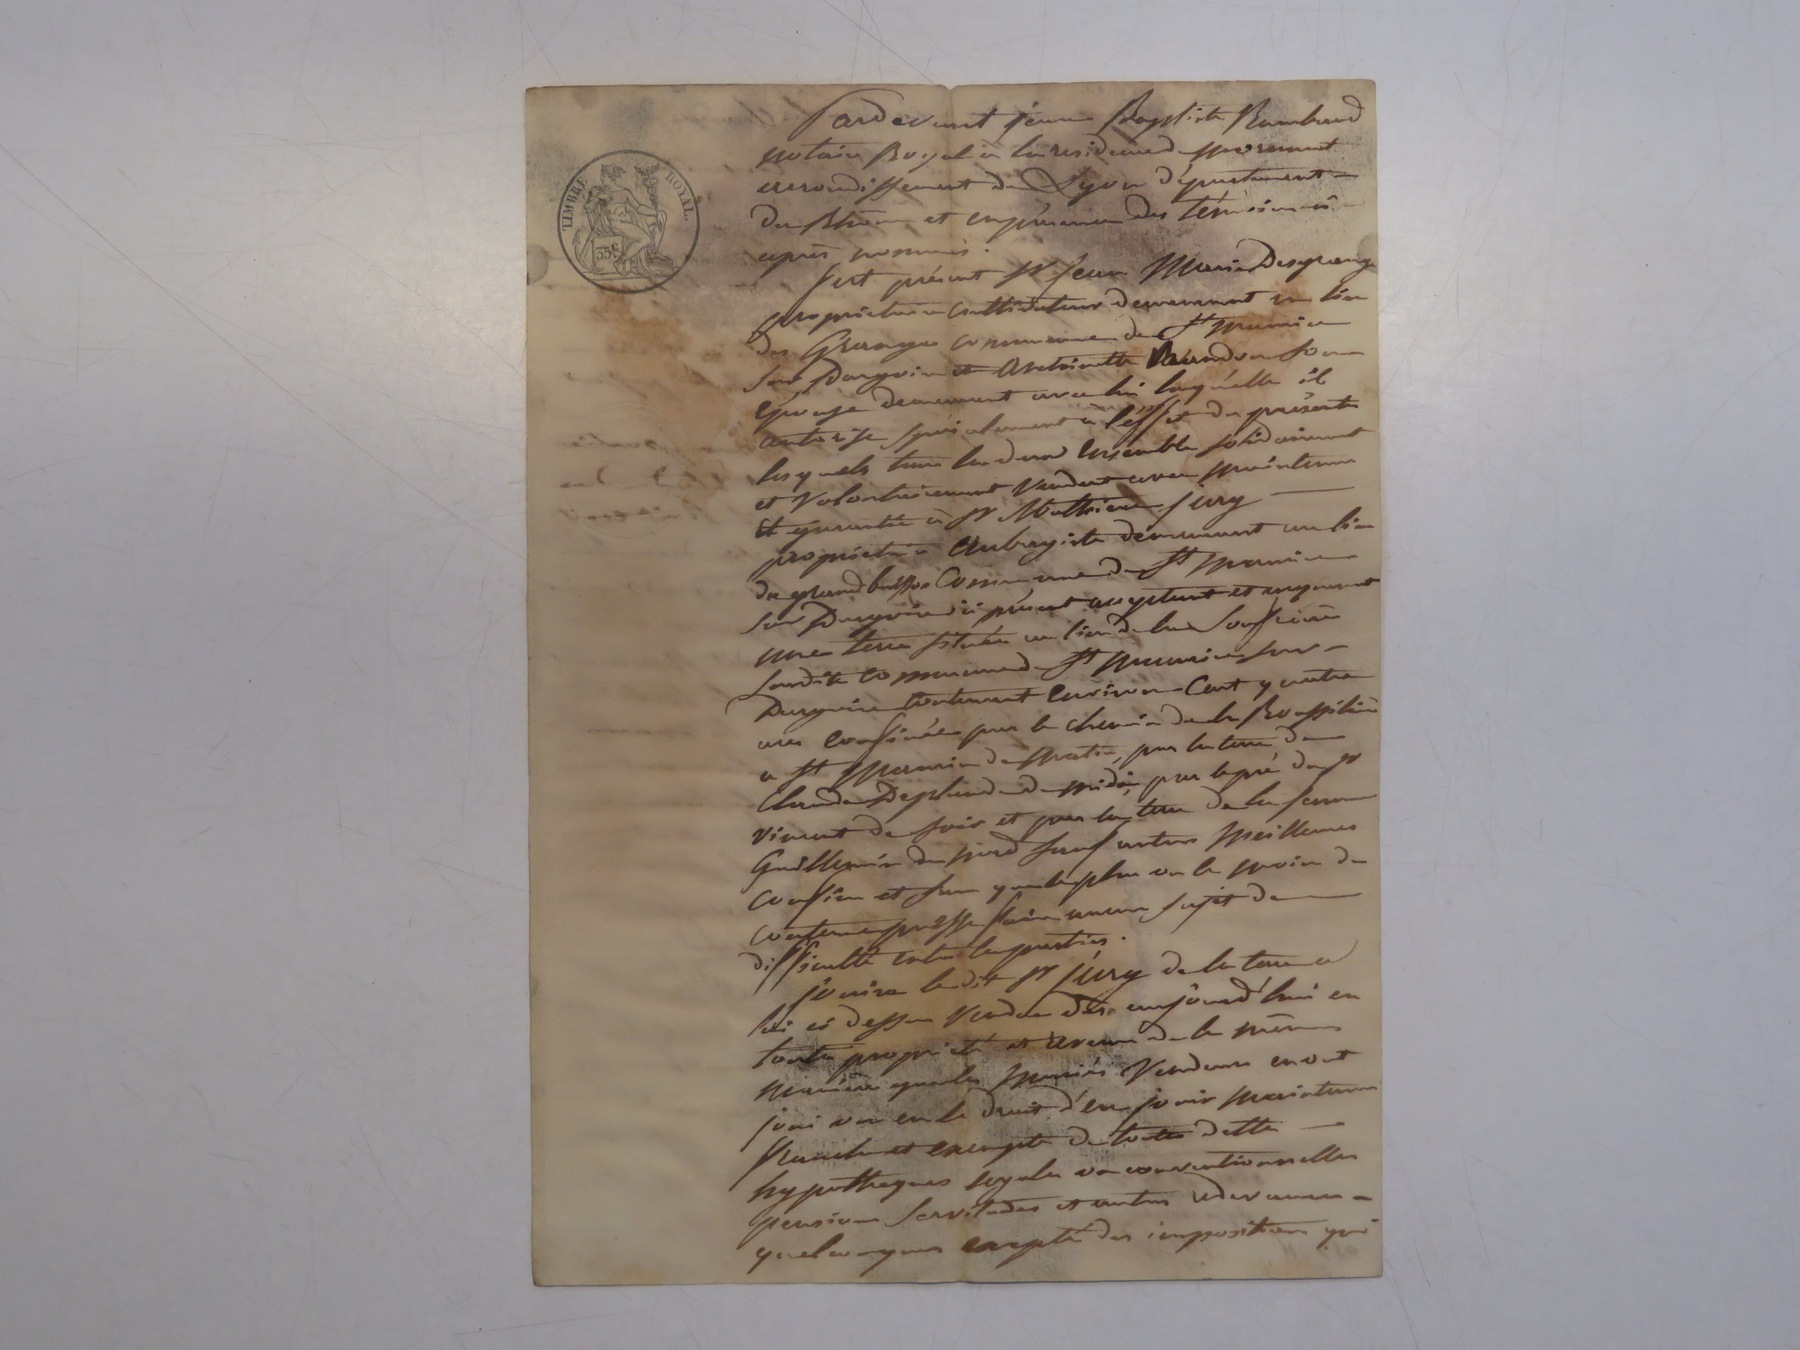 TIMBRE ROYAL.
35 c
Pardevant Jean Baptiste Rambaud
notaire Royal à la résidence de Mornant
arrondissement de Lyon département
du Rhône et en présence des témoins ci
après nommés.
fut présent Sr Jean Marie Desgrange
propriétaire cultivateur demeurant au lieu
des Granges commune de St Maurice
sur Dargoire et Antoinette son
épouse demeurant avec lui laquelle il
autorise spécialement à l'effet du présent
lesquels tous les deux Ensemble solidairement
et Volontairement Vendent avec maintenue
Et garantie à Sr Mathieu Jury
propriétaire Aubergiste demeurant au lieu
du grand buisson Commune de St Maurice
sur Dargoire ici présent acceptant et acquérant
une terre située au lieu de la
susdite commune de St Maurice sur
Dargoire Contenant Environ Cent quatre
ares Confinée par le chemin de la Roussilière
a St Maurice de Matin, par la terre de
Claude de midi, par le pré du Sr
Vincent de soir et par la terre de la femme
Guillermin du nord sauf autres Meilleures
Confins et sans que le plus ou le moins de
contenu puisse faire aucun sujet de
difficulté entre les parties.
Jouira ledit Sr Jury de la terre a
lui ci dessus Vendue dès aujourd'hui en
toute propriété et de la même
manière que les Mariés Vendeurs en ont
joui ou eu le droit d'en jouir Maintenue
franche et exempte de toutes dettes
hypothèques légales ou conventionnelles
pensions Servitudes et autres redevances
quelconques excepté des impositions qui